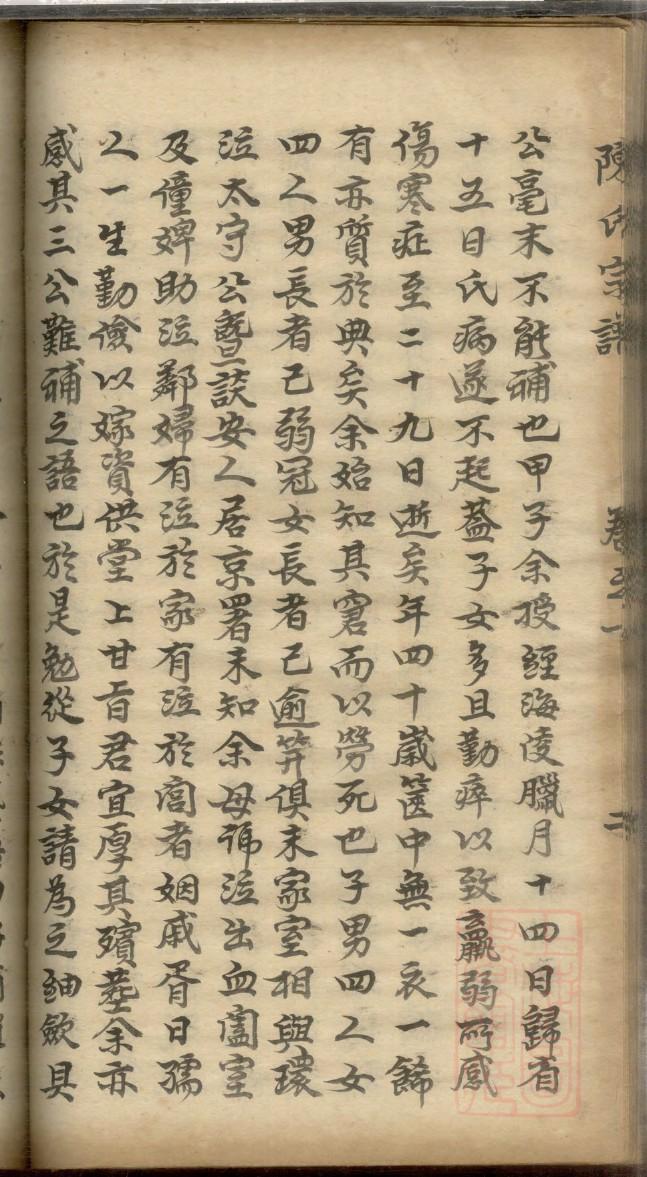 陳氏宗譜 卷之一 二
公毫末不能補也甲子余授經海陵臘月十四日歸省
十五日氏病遂不起蓋子女多且勤瘁以致羸弱所感
傷寒症至二十九日逝矣年四十歲篋中無一衣一飾
有亦質於典矣余始知其窘而以勞死也子男四人女
四人男長者已弱冠女長者已逾笄俱未家室相與環
泣太守公蹔談安人居京署未知余母號泣出血闔室
及僮婢助泣鄰婦有泣於家有泣於閭者姻戚胥曰孺
人一生勤儉以嫁資供堂上甘旨君宜厚其殯葬余亦
感其三公難補之語也於是勉從子女請為之紬歛具